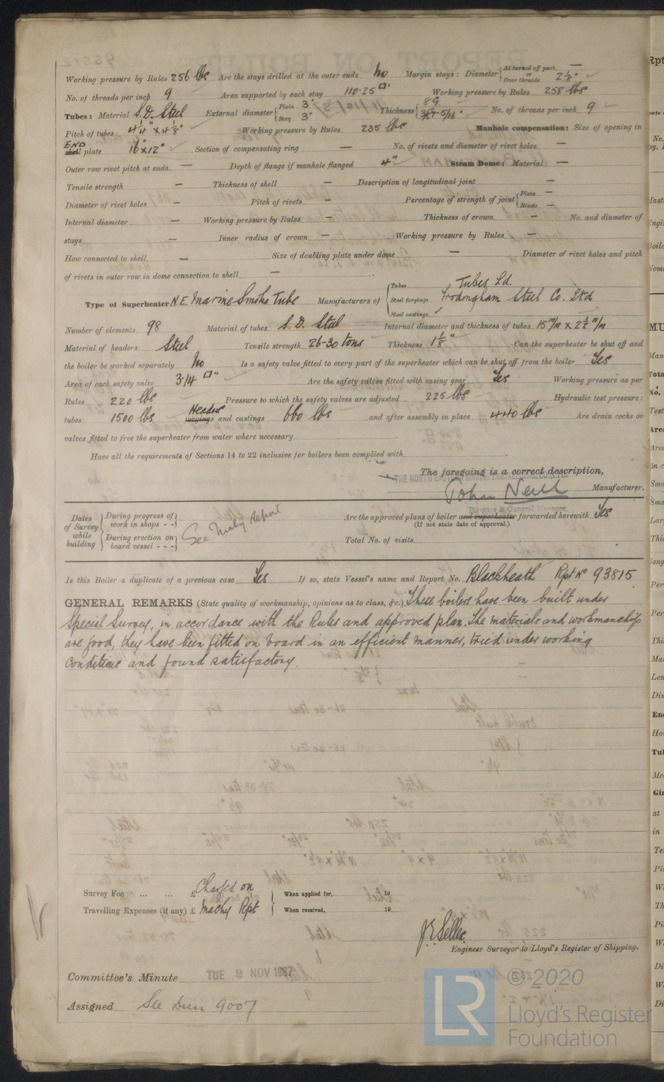 Working pressure by Rules 256 lbs Are the stays drilled at the outer ends No Margin stays: Diameter { At turned off part, — or Over threads 2 1/8" —
No. of threads per inch 9 Area supported by each stay 110.25 □" Working pressure by Rules 258 lbs
Tubes: Material S.D. Steel External diameter { Plain 3" Stay 3" Thickness { 8G 5/16" No. of threads per inch 9
Pitch of tubes 4 1/4" x 4 1/8" Working pressure by Rules 235 lbs Manhole compensation: Size of opening in
END plate 16" x 12" Section of compensating ring — No. of rivets and diameter of rivet holes —
Outer row rivet pitch at ends — Depth of flange if manhole flanged 4" Steam Dome: Material —
Tensile strength — Thickness of shell — Description of longitudinal joint —
Diameter of rivet holes — Pitch of rivets — Percentage of strength of joint { Plate — Rivets —
Internal diameter — Working pressure by Rules — Thickness of crown — No. and diameter of
stays — Inner radius of crown — Working pressure by Rules —
How connected to shell — Size of doubling plate under dome — Diameter of rivet holes and pitch
of rivets in outer row in dome connection to shell —
Type of Superheater N.E. Marine Smoke Tube Manufacturers of { Tubes Tubes Ld. Steel forgings Frodingham Steel Co. Ltd Steel castings
Number of elements 98 Material of tubes S.D. Steel Internal diameter and thickness of tubes 15 m/m x 2 1/2 m/m
Material of headers Steel Tensile strength 26-30 tons Thickness 1 1/8" Can the superheater be shut off and
the boiler be worked separately No Is a safety valve fitted to every part of the superheater which can be shut off from the boiler Yes
Area of each safety valve 3.14 □" Are the safety valves fitted with easing gear Yes Working pressure as per
Rules 220 lbs Pressure to which the safety valves are adjusted 225 lbs Hydraulic test pressure:
tubes 1500 lbs Header and castings 660 lbs and after assembly in place 440 lbs Are drain cocks or
valves fitted to free the superheater from water where necessary
Have all the requirements of Sections 14 to 22 inclusive for boilers been complied with
The foregoing is a correct description,
John Neill Manufacturer.
Dates of Survey while building { During progress of work in shops - - } { During erection on board vessel - - - } See Machy Report
Are the approved plans of boiler and superheater forwarded herewith Yes
(If not state date of approval.)
Total No. of visits
Is this Boiler a duplicate of a previous case Yes If so, state Vessel's name and Report No. Blackheath Rpt No 93815
GENERAL REMARKS (State quality of workmanship, opinions as to class, &c.) These boilers have been built under
Special Survey, in accordance with the Rules and approved plan. The materials and workmanship
are good, they have been fitted on board in an efficient manner, tried under working
conditions and found satisfactory.
Survey Fee ... ... £ Charged on When applied for, 19
Travelling Expenses (if any) £ Machy Rpt When received, 19
Engineer Surveyor to Lloyd's Register of Shipping.
Committee's Minute TUE 9 NOV 1937
Assigned See
LR
© 2020
Lloyd's Register
Foundation